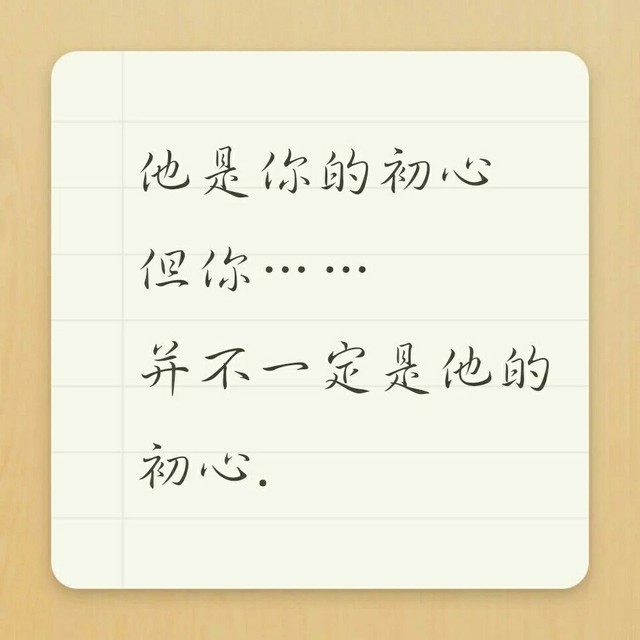 他是你的初心
但你⋯ ⋯
并不一定是他的
初心.